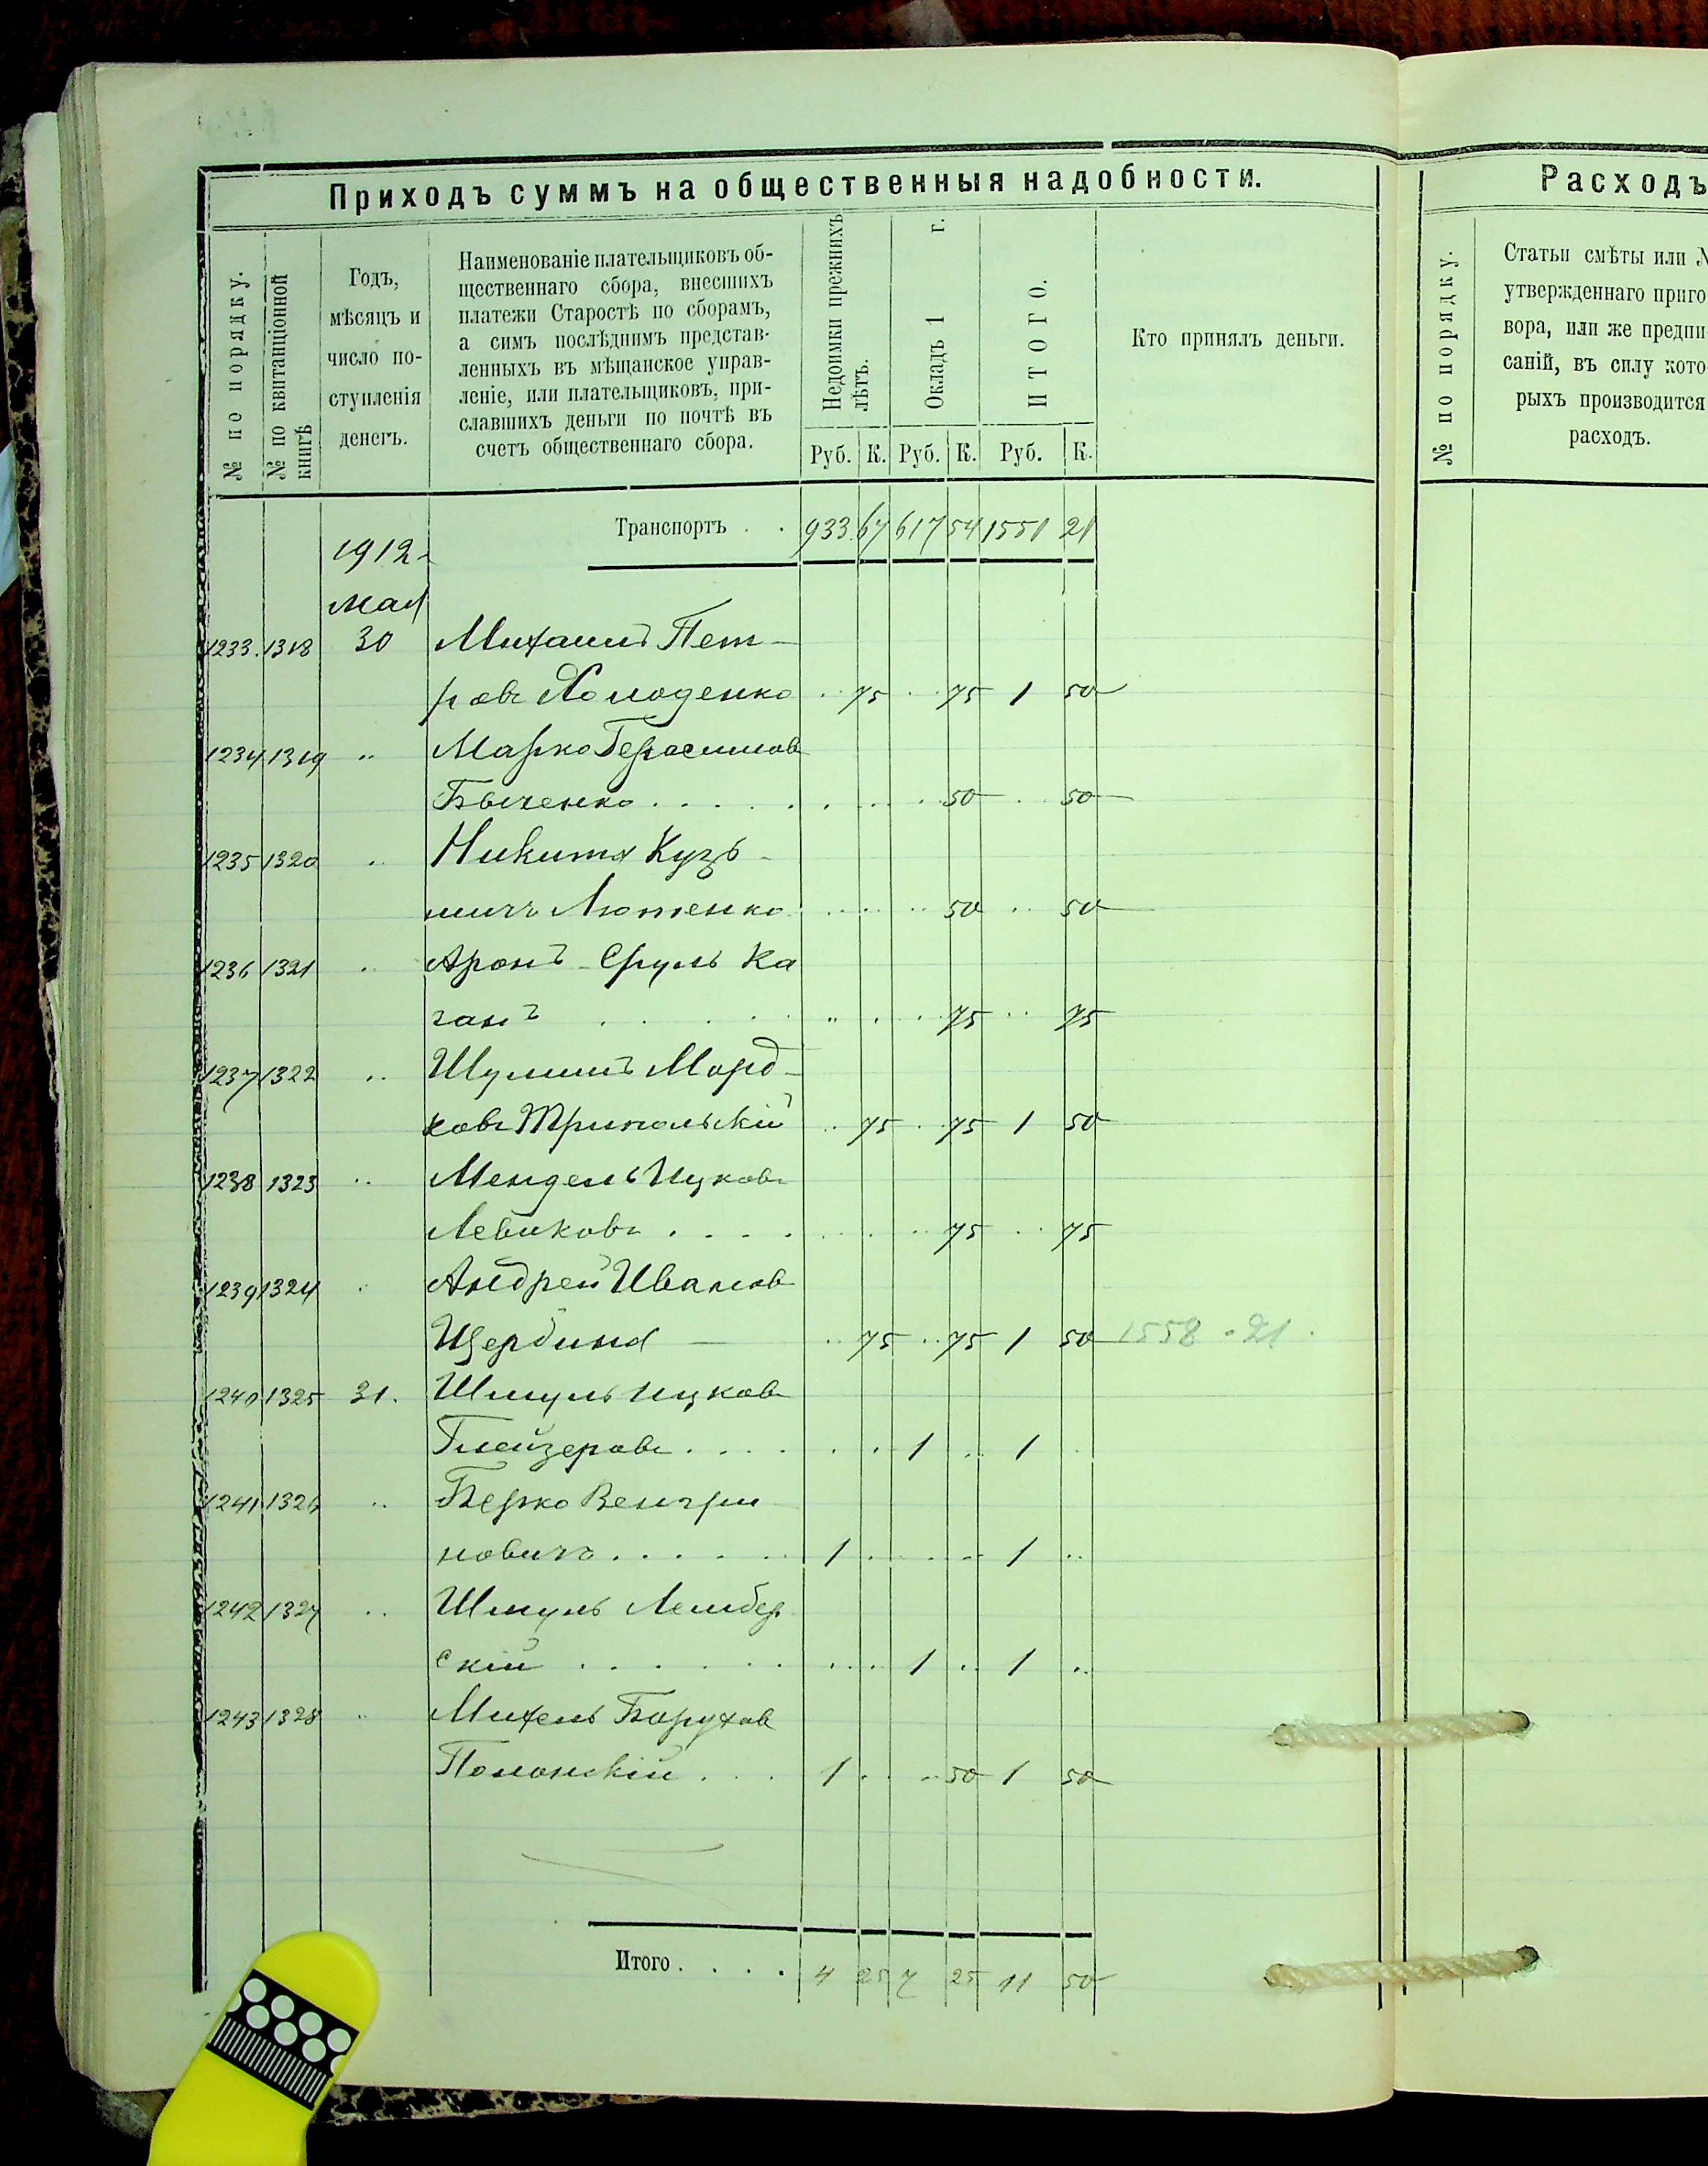 Приходъ суммъ на общественныя надобности.
№ по порядку.
№ по квитанціонной
книгѣ
Годъ,
мѣсяцъ и
число по-
ступленія
денегъ.
Наименованіе плательщиковъ об-
щественнаго сбора, внесшихъ
платежи Старостѣ по сборамъ,
а симъ послѣднимъ представ-
ленныхъ въ мѣщанское управ-
леніе, или плательщиковъ, при-
славшихъ деньги по почтѣ въ
счетъ общественнаго сбора.
Недоимки прежнихъ
лѣтъ.
Окладъ 1 г.
ИТОГО.
Руб. К. Руб. К. Руб. К.
Кто принялъ деньги.
Транспортъ . . 933 67 617 54 1551 21
1912
мая
1233. 1318 30 Михаилъ Пет-
ровъ Холоденко 75 75 1 50
1234 1319 " Марко Герасимов
Быченко . . . . 50 50
1235 1320 " Никита Кузь-
мичъ Лютенко 50 50
1236 1321 " Аронъ-Сруль Ка
ганъ 75 75
1237 1322 " Шулимъ Морд-
ковъ Трипольскій 75 75 1 50
1238 1323 " Мендель Ицковъ
Левиковъ . . . . 75 75
1239 1324 " Андрей Иванов
Щербина 75 75 1 50 1558 - 21
1240 1325 31. Шмуль Ицков
Глейзеровъ . . . . 1 1
1241 1326 " Берко Венгри
новичъ . . . . . 1 1
1242 1327 " Шмуль Лембер
скій . . . . . . 1 1
1243 1328 " Михель Борухов
Полонскій . . . 1 50 1 50
Итого . . . . 4 25 7 25 11 50
Расходъ
№ по порядку.
Статьи смѣты или №
утвержденнаго приго
вора, или же предпи
саній, въ силу кото
рыхъ производится
расходъ.